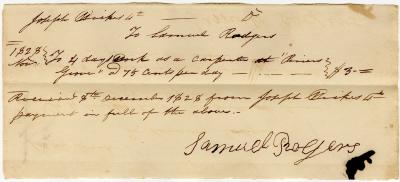 Joseph Bickes Dr
To Samuel Rodgers
1828 Nov. To 4 day work as a carpenter at "Pines
Grove" @ 75 Cents per day — — — $3.=
Received 8th December 1828 from Joseph Bickes
payment in full of the above.—
Samuel Rogers